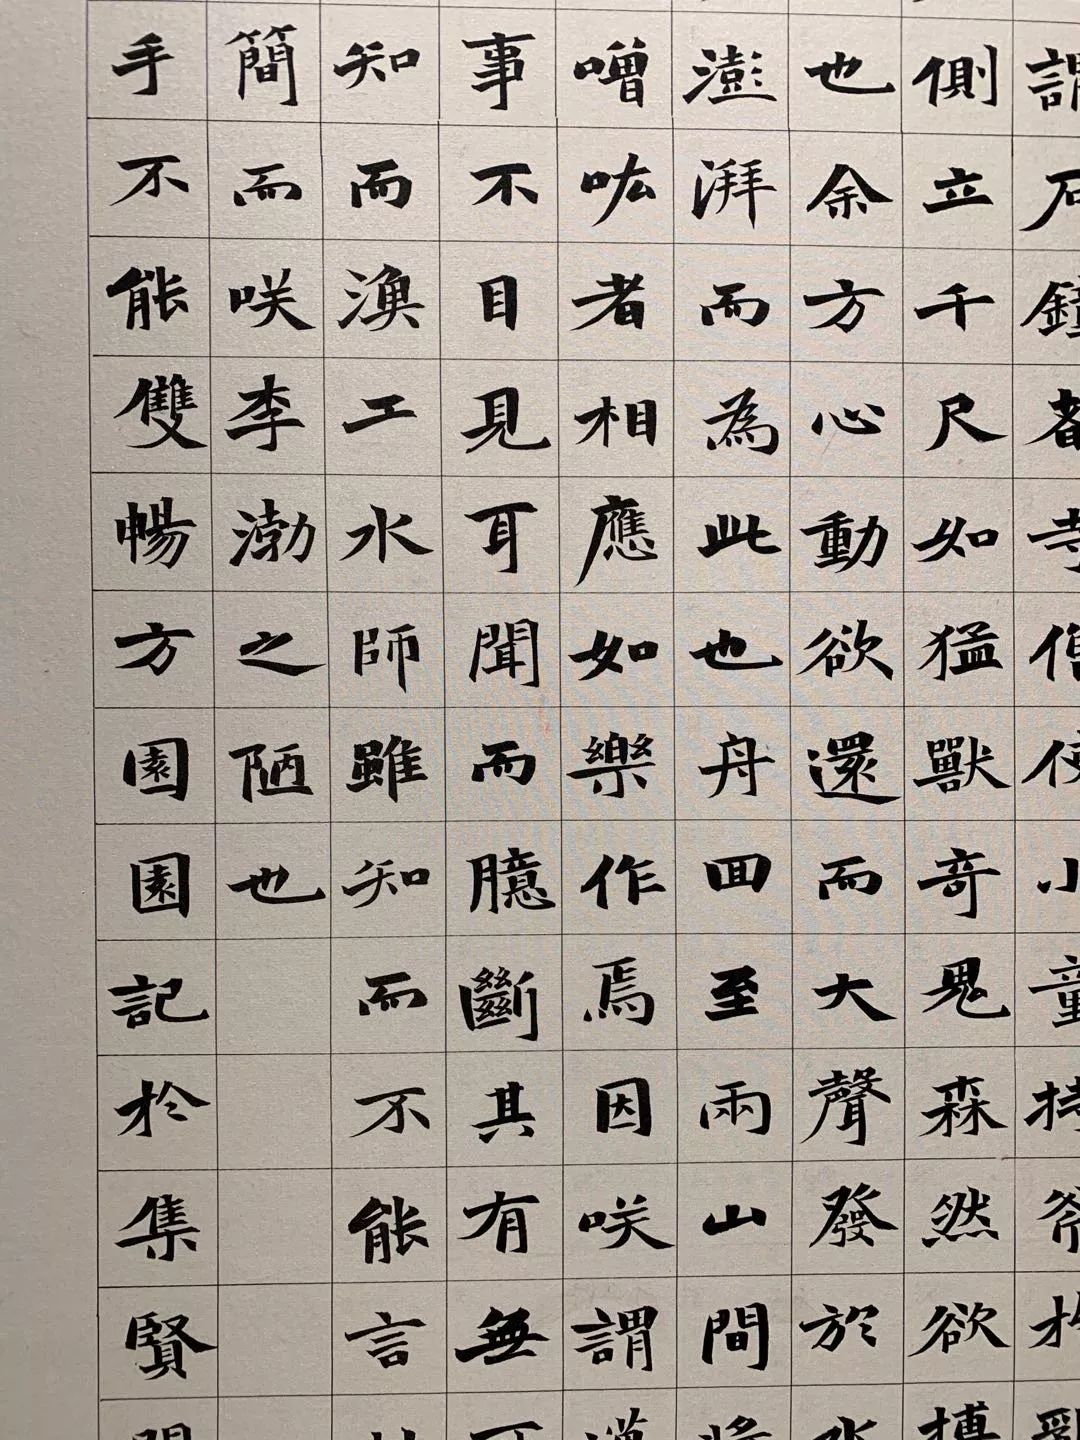 謂石鐘者寺僧使小童持斧於亂
側立千尺如猛獸奇鬼森然欲搏
也余方心動欲還而大聲發於水
澎湃而為此也舟囬至兩山間將
噌吰者相應如樂作焉因咲謂
事不目見耳聞而臆斷其有無可
知而漁工水師雖知而不能言
簡而咲李渤之陋也
手不能雙暢方園園記於集賢